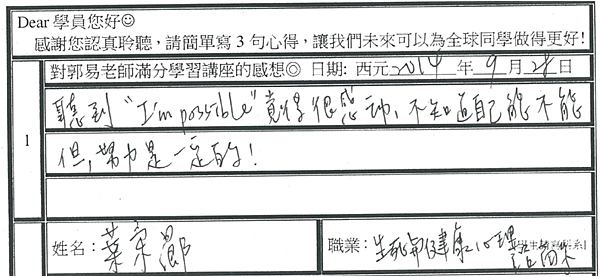 Dear 學員您好☺
感謝您認真聆聽，請簡單寫 3 句心得，讓我們未來可以為全球同學做得更好!
對郭易老師滿分學習講座的感想◎ 日期: 西元 2014 年 9 月 28 日
1
聽到 "I'm possible" 覺得很感動，不知道自己能不能
但，努力是一定的!
姓名：葉宗
職業：生死與健康心理諮商系